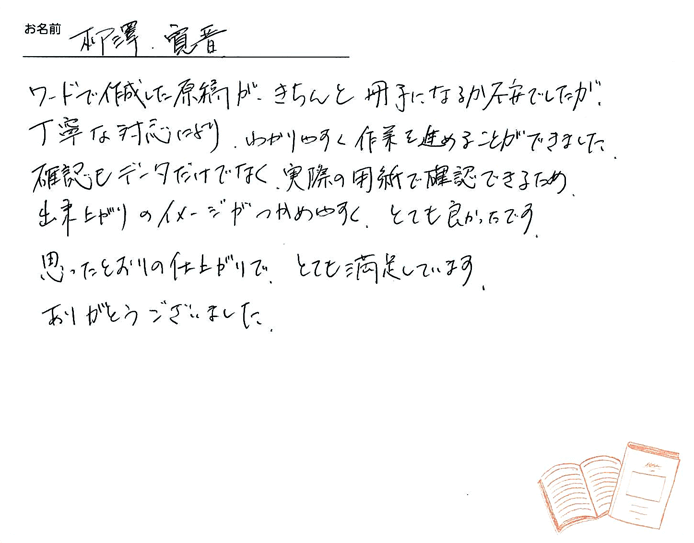 お名前 柳澤.寛晋
ワードで作成した原稿が、きちんと冊子になるか不安でしたが、
丁寧な対応により、わかりやすく作業を進めることができました。
確認もデータだけでなく、実際の用紙で確認できるため、
出来上がりのイメージがつかめやすく、とても良かったです。
思ったとおりの仕上がりで、とても満足しています。
ありがとうございました。